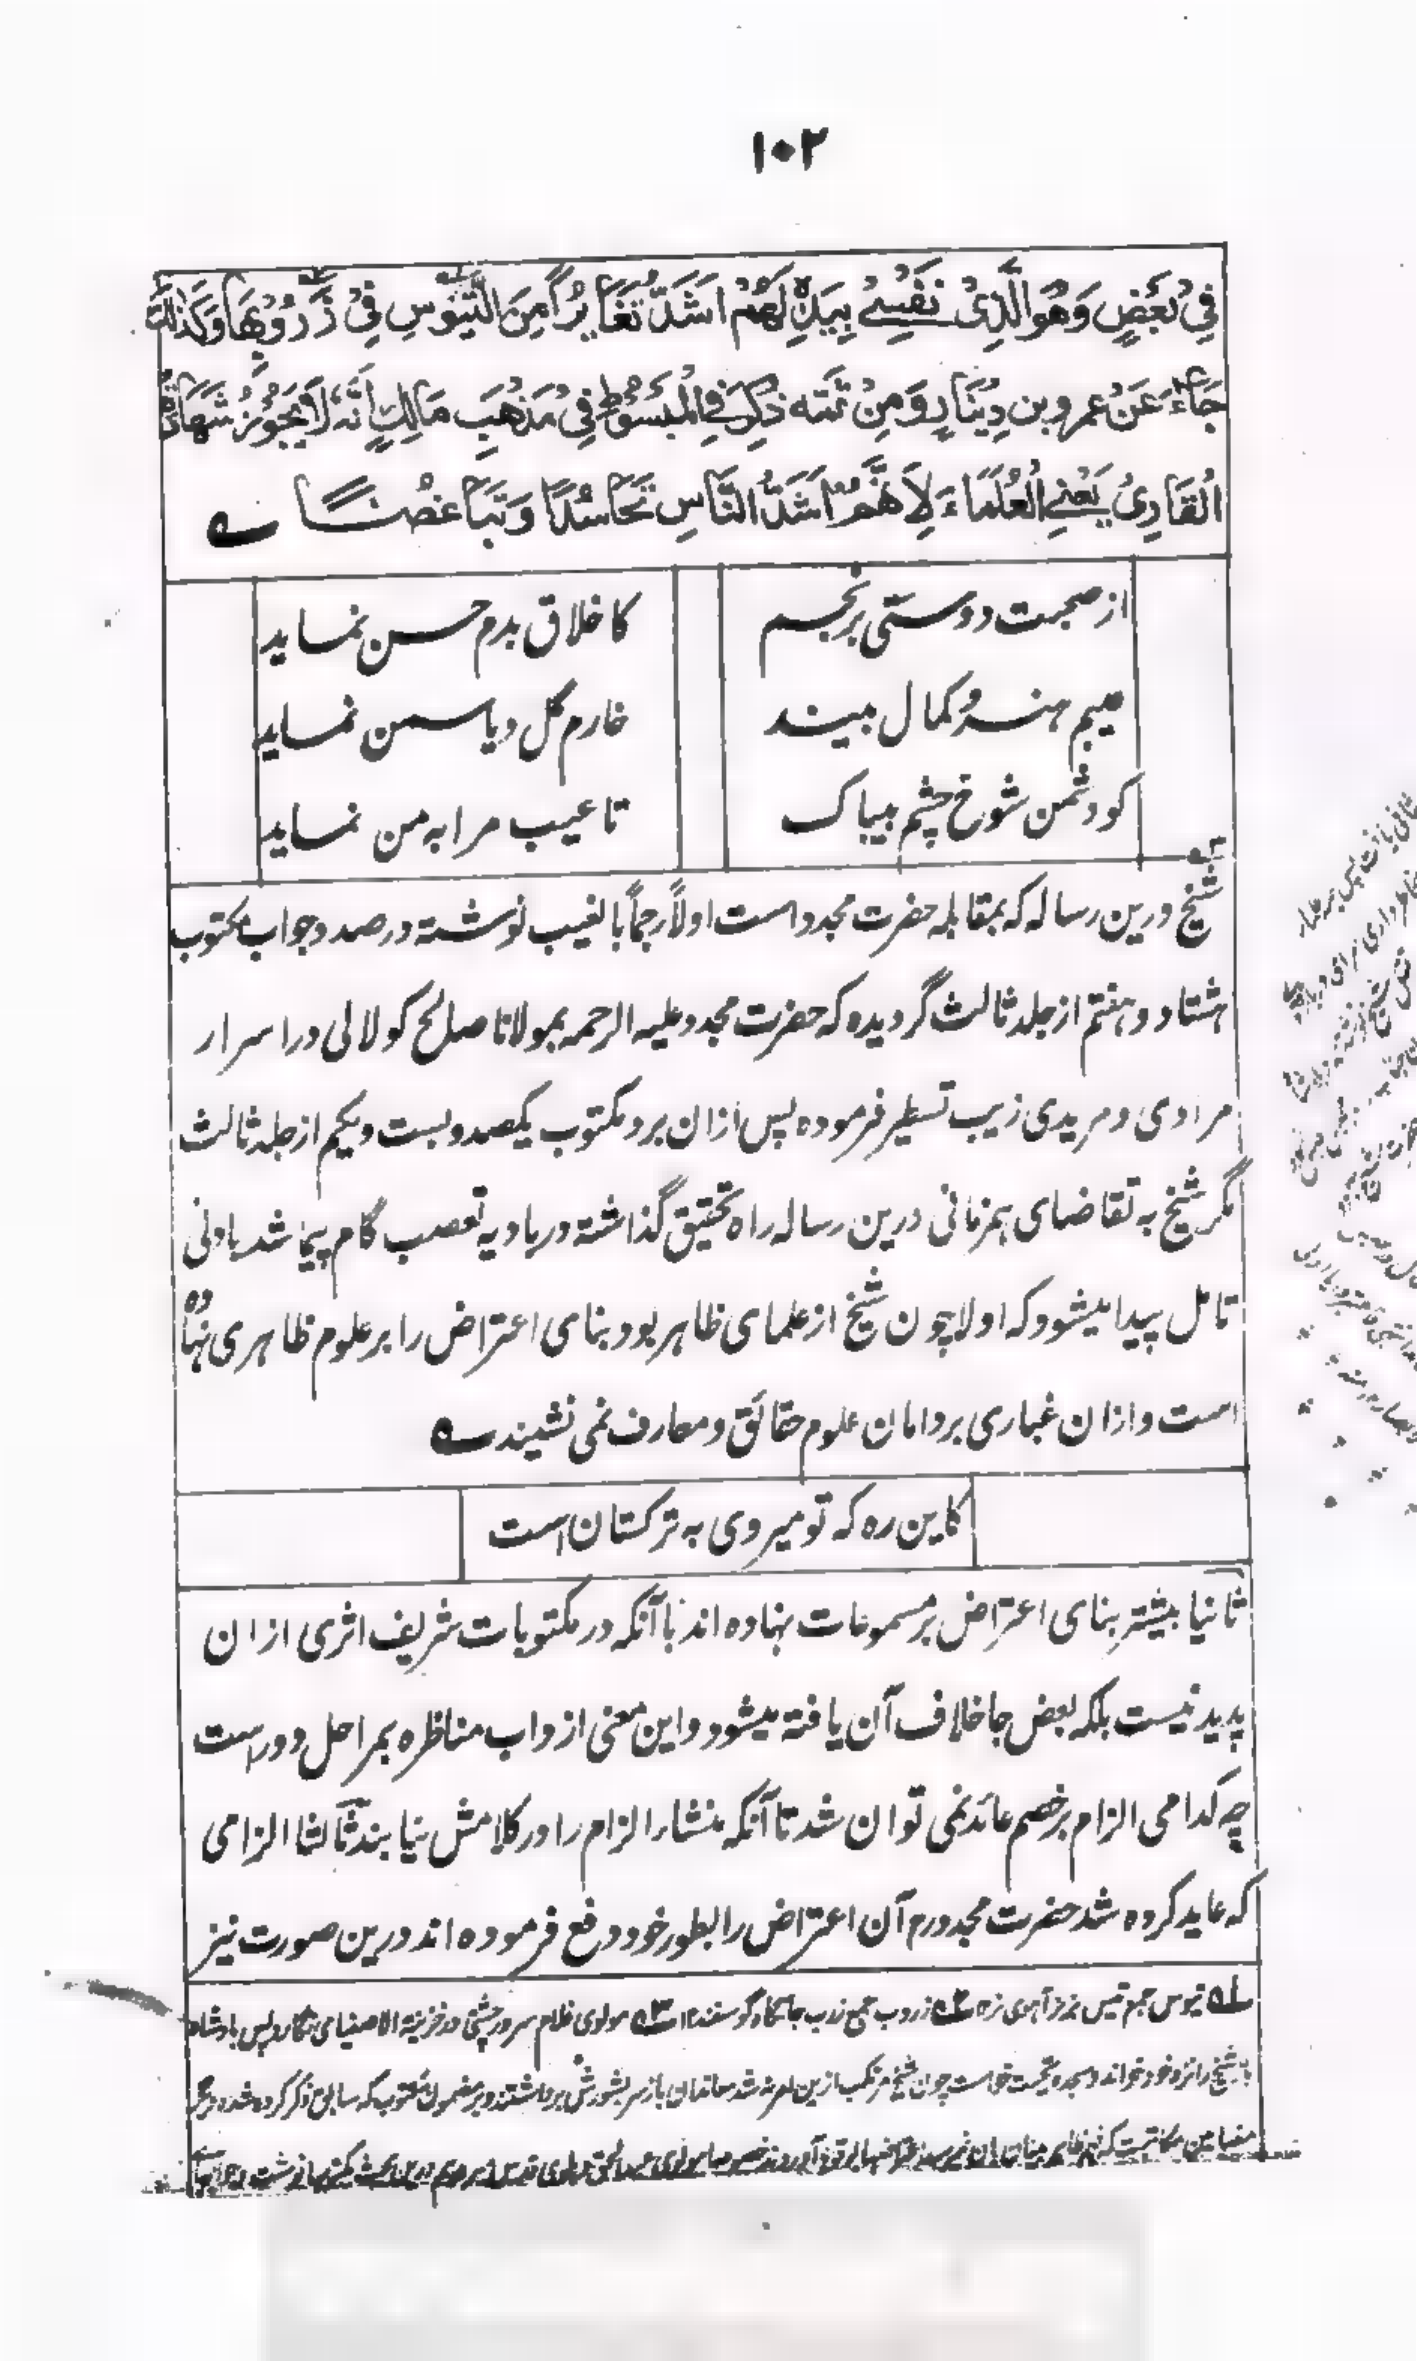 ١٠٢
فِي بَعْضٍ وَهُوَ الَّذِي نَفْسِي بِيَدِهِ لَهُمْ اَشَدُّ تَغَايُرًا مِنَ التُّيُوسِ فِي زُرُوبِهَا وَكَذٰلِكَ
جَاءَ عَنْ عمرو بن دِيْنَارٍ وَمِنْ ثَمَّه ذُكِرَ فِي الْمَبْسُوْطِ فِي مَذْهَبِ مَالِكٍ اَنَّه لَا يَجُوْزُ شَهَادَةُ
الْقَارِيْ يَعْنِي الْعُلَمَاءَ لِاَنَّهُمْ اَشَدُّ النَّاسِ تَحَاسُدًا وَتَبَاغُضًا ے
از صحبت دوستی برنجم
کاخلاق بدم حسن نماید
عیبم هنر و کمال بیند
خارم گل و یاسمن نماید
کو دشمن شوخ چشم بیباک
تا عیب مرا به من نماید
شیخ درین رساله که بمقابله حضرت مجدد است اولاً رجماً بالغیب نوشته در صدد جواب مکتوب
هشتاد و هفتم از جلد ثالث گردیده که حضرت مجدد علیه الرحمه بمولانا صالح کولابی در اسرار
مرادی و مریدی زیب تسطیر فرموده پس ازان بر د مکتوب یکصد و بست و یکم از جلد ثالث
مگر شیخ به تقاضای همزمانی درین رساله راه تحقیق گذاشته در بادیه تعصب گام پیما شد بادنی
تامل پیدا میشود که اولا چون شیخ از علمای ظاهر بود بنای اعتراض را بر علوم ظاهری نهاده
است و ازان غباری بر دامان علوم حقائق و معارف نمی نشیند ے
کاین ره که تو میروی به ترکستان است
ثانیا بیشتر بنای اعتراض بر مسموعات نهاده اند با آنکه در مکتوبات شریف اثری ازان
پدید نیست بلکه بعض جا خلاف آن یافته میشود و این معنی از داب مناظره بمراحل دور است
چه کدامی الزام بر خصم عائد نمی توان شد تا آنکه منشاء الزام را در کلامش نیابند ثالثا الزامی
که عاید کرده شد حضرت مجدد رم آن اعتراض را بطور خود دفع فرموده اند درین صورت نیز
۱ تیوس جمع تیس بز نر آهوی نر ۲ زروب جمع زرب جایگاه گوسفند ۳ مولوی غلام سرور چشتی در خزینة الاصفیا می نگارد پس بادشاه
شیخ را نزد خود خواند و سجده تحیت خواست چون شیخ مرتکب ازین امر نه شد معاندان باز سر بشورش برداشتند و بر مضمون مکتوب که سابق ذکر کرده شد